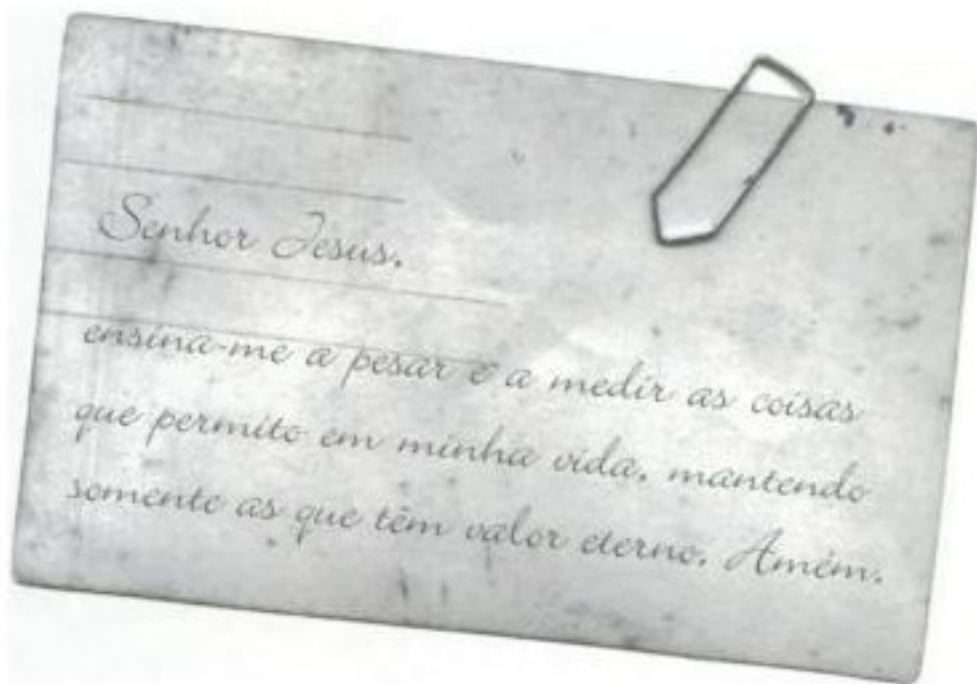 Senhor Jesus,
ensina-me a pesar e a medir as coisas
que permito em minha vida, mantendo
somente as que têm valor eterno. Amém.